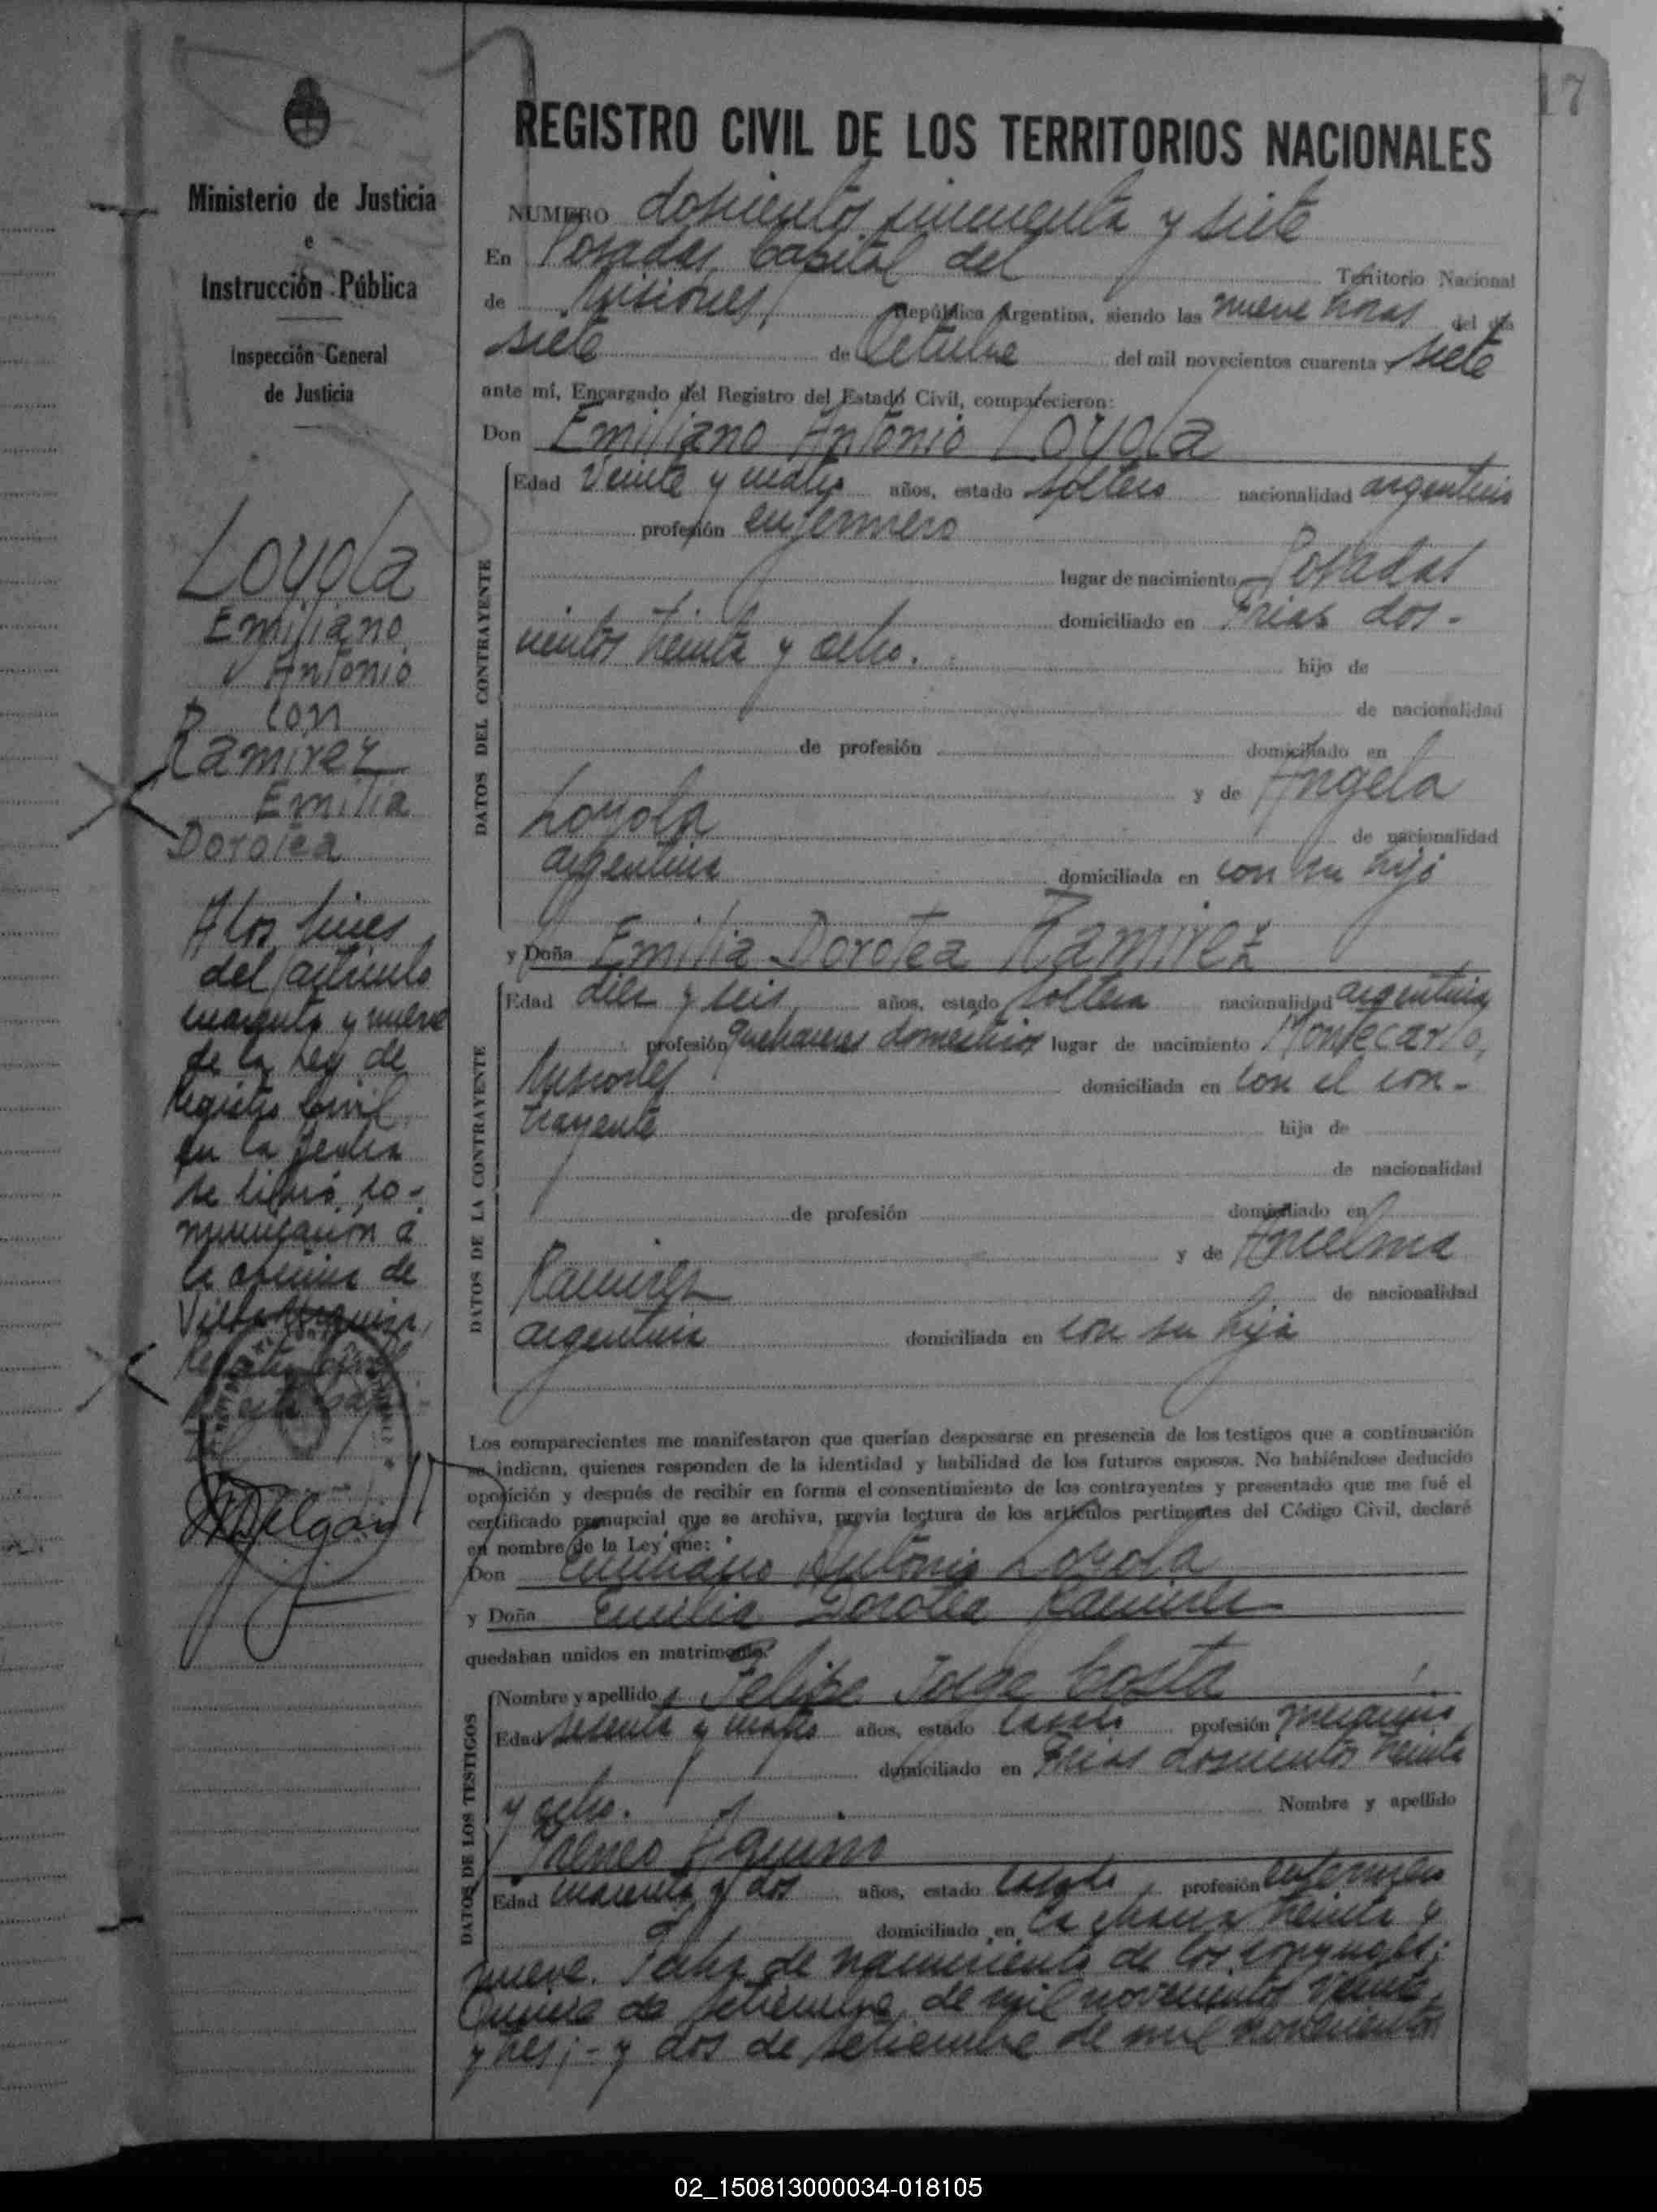 17
Ministerio de Justicia
e
Instrucción Pública
Inspección General
de Justicia
Loyola
Emiliano
Antonio
con
Ramirez
Emilia
Dorotea
A los fines
del artículo
cuarenta y nueve
de la Ley de
Registro Civil,
en la fecha
se libró co-
municación á
la oficina de
Villa Urquiza,
Registro Civil
REGISTRO CIVIL DE LOS TERRITORIOS NACIONALES
NUMERO doscientos cincuenta y siete
En Posadas, Capital del Territorio Nacional
de Misiones, República Argentina, siendo las nueve horas del día
siete de Octubre del mil novecientos cuarenta y siete
ante mí, Encargado del Registro del Estado Civil, comparecieron:
Don Emiliano Antonio Loyola
DATOS DEL CONTRAYENTE
Edad Veinte y cuatro años, estado soltero nacionalidad argentino
profesión enfermero
lugar de nacimiento Posadas
domiciliado en Frias dos-
cientos treinta y ocho. hijo de
de nacionalidad
de profesión domiciliado en
y de Angela
Loyola de nacionalidad
argentina domiciliada en con su hijo
y Doña Emilia Dorotea Ramirez
DATOS DE LA CONTRAYENTE
Edad diez y seis años, estado soltera nacionalidad argentina
profesión quehaceres domesticos lugar de nacimiento Montecarlo,
Misiones domiciliada en con el con-
trayente hija de
de nacionalidad
de profesión domiciliado en
y de Ancelma
Ramirez de nacionalidad
argentina domiciliada en con su hija
Los comparecientes me manifestaron que querían desposarse en presencia de los testigos que a continuación
se indican, quienes responden de la identidad y habilidad de los futuros esposos. No habiéndose deducido
oposición y después de recibir en forma el consentimiento de los contrayentes y presentado que me fué el
certificado prenupcial que se archiva, previa lectura de los artículos pertinentes del Código Civil, declaré
en nombre de la Ley que:
Don Emiliano Antonio Loyola
y Doña Emilia Dorotea Ramirez
quedaban unidos en matrimonio.
DATOS DE LOS TESTIGOS
Nombre y apellido Felipe Jorge Costa
Edad sesenta y cuatro años, estado casado profesión
domiciliado en Frias doscientos treinta
y ocho. Nombre y apellido
Ireneo Aquino
Edad cuarenta y dos años, estado casado profesión enfermero
domiciliado en la chacra treinta y
nueve. Fecha de nacimiento de los conyuges:
Quince de setiembre de mil novecientos veinte
y tres; - y dos de setiembre de mil novecientos
02_150813000034-018105